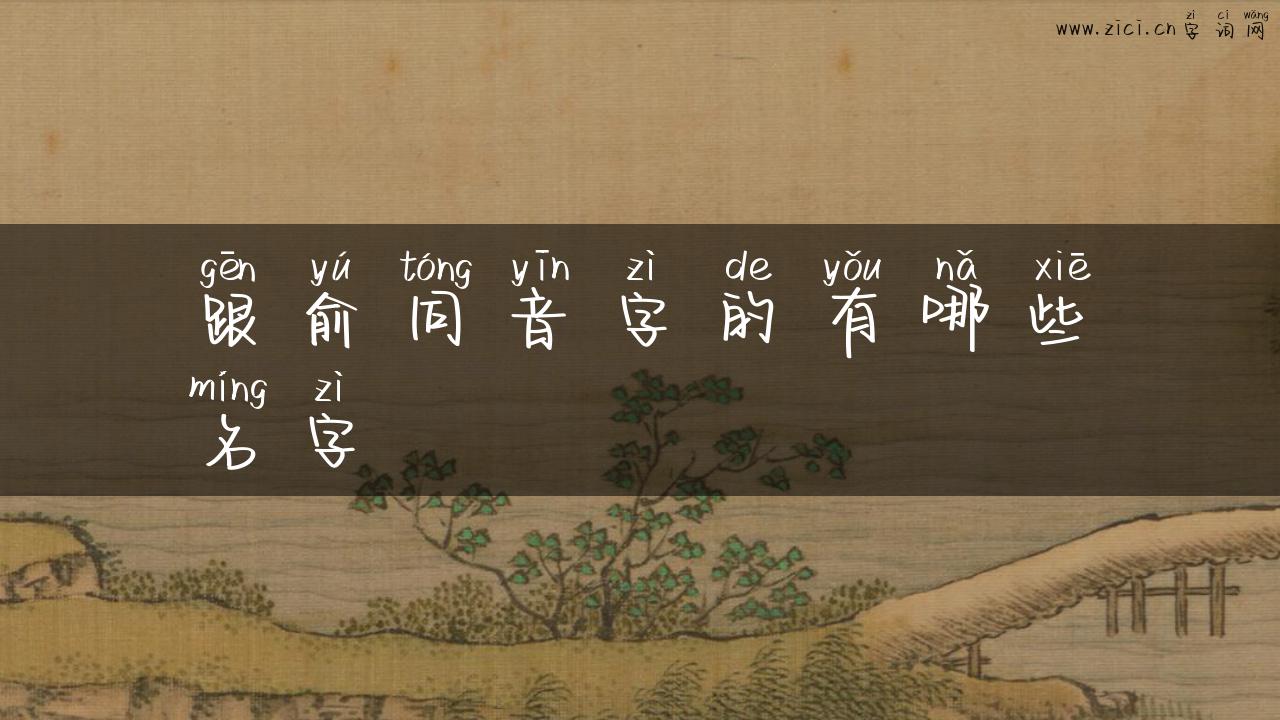 www.zici.cn zì cí wǎng 字词网
gēn yú tóng yīn zì de yǒu nǎ xiē
跟俞同音字的有哪些
míng zì
名字